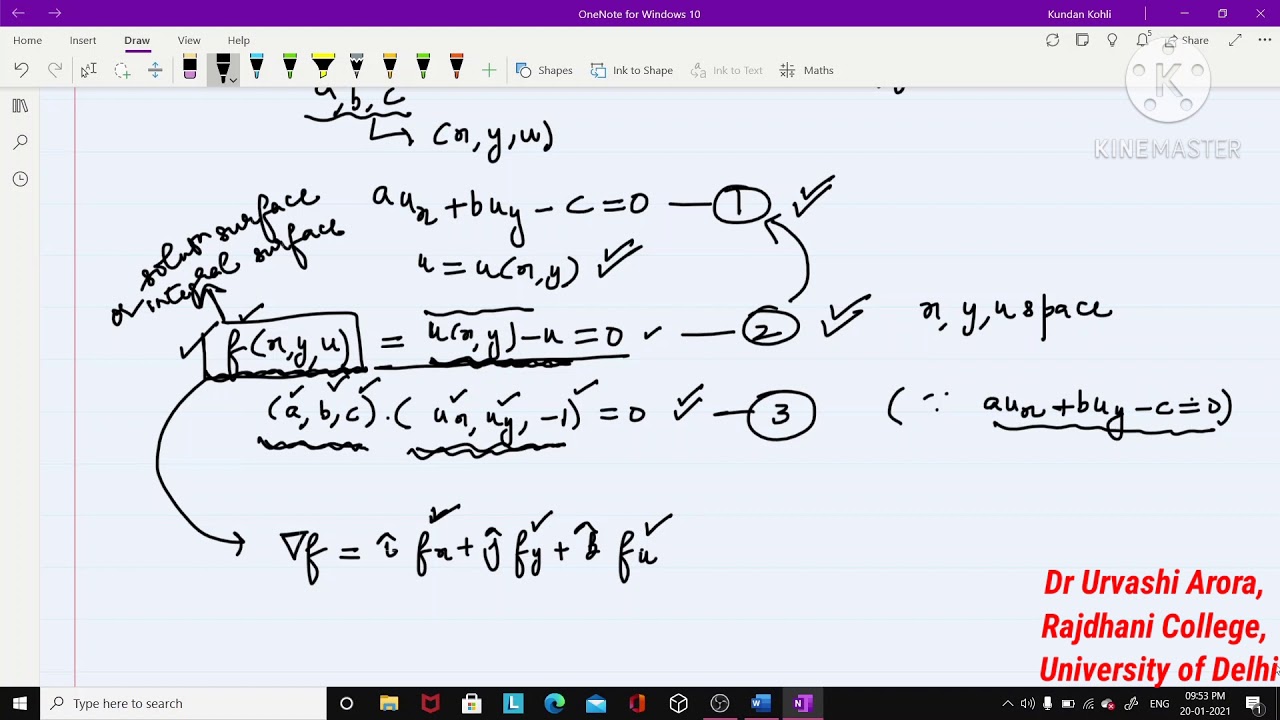 OneNote for Windows 10
Kundan Kohli
Home Insert Draw View Help
Share
Shapes Ink to Shape Ink to Text Maths
K
KINEMASTER
a, b, c
(x, y, u)
aux + buy - c = 0 — 1
u = u(x, y)
solution surface
or integral surface
f(x, y, u) = u(x, y) - u = 0 — 2
x, y, u space
(a, b, c) · (ux, uy, -1) = 0 — 3
(∵ aux + buy - c = 0)
∇f = î fx + ĵ fy + k̂ fu
Dr Urvashi Arora,
Rajdhani College,
University of Delhi
Type here to search
ENG
09:53 PM
20-01-2021
1